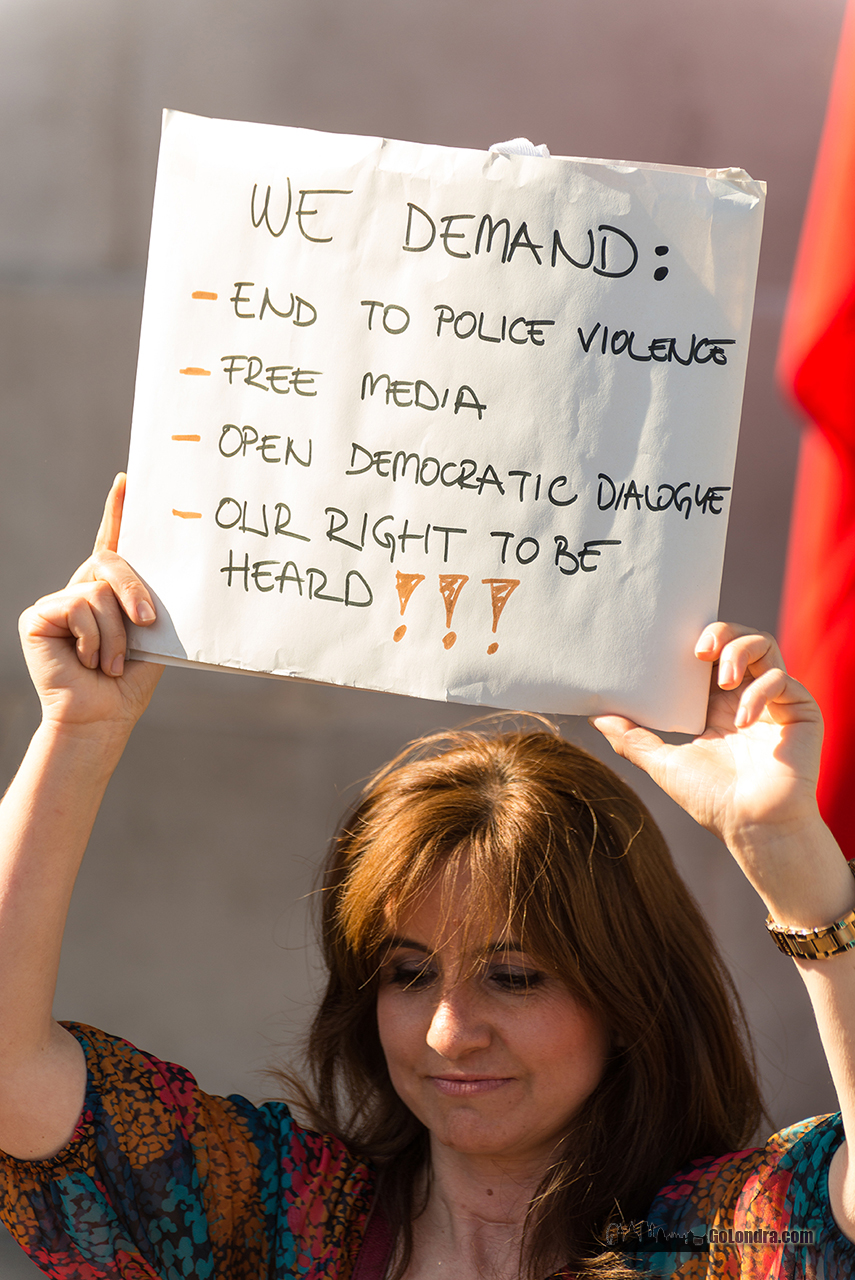 WE DEMAND:
- END TO POLICE VIOLENCE
- FREE MEDIA
- OPEN DEMOCRATIC DIALOGUE
- OUR RIGHT TO BE
HEARD!!!
GoLondra.com